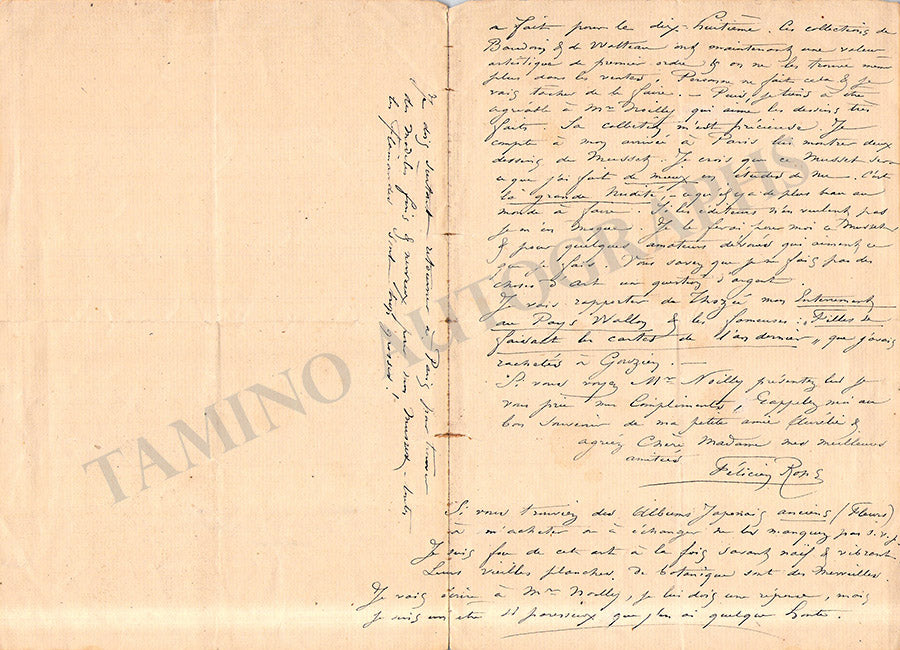 a fait pour le dix-huitième. Ces collections de
Baudoin & de Watteau ont maintenant une valeur
artistique de premier ordre & on ne les trouve même
plus dans les ventes. Personne ne fait cela & je
vais tâcher de le faire. — Puis je tiens à être
agréable à Mr Noilly qui aime les dessins très
faits. Sa collection m'est précieuse. Je
compte à mon arrivée à Paris lui montrer deux
dessins de Musset. Je crois que ce Musset sera
ce que j'ai fait de mieux en études de nu. C'est
la grande Nudité, ce qu'il y a de plus beau au
monde à faire. Si les éditeurs n'en veulent pas
je m'en moque. Je le ferai pour moi ce Musset
& pour quelques amateurs dévoués qui aiment ce
que je fais. Vous savez que je ne fais pas des
choses d'Art une question d'argent.
Je vais rapporter de Thozée mon Enterrement
au Pays Wallon & les fameuses: „Filles se
faisant les cartes de l'an dernier„ que j'avais
rachetées à Gouzien. —
Si vous voyez Mr Noilly présentez lui je
vous prie mes Compliments, Rappelez moi au
bon souvenir de ma petite amie fleurie &
agréez Chère Madame mes meilleures
amitiés
Félicien Rops
Si vous trouviez des Albums Japonais anciens (Fleurs)
à m'acheter ou à échanger ne les manquez pas s.v.p.
Je suis fou de cet art à la fois savant naïf & vibrant.
Leurs vieilles planches de botanique sont des Merveilles.
Je vais écrire à Mr Noilly, je lui dois une réponse, mais
je suis été si paresseux que j'en ai quelque honte.
Je dois surtout retourner à Paris pour trouver
des modèles fins & nerveux pour mon Musset, toutes
les flamandes sont trop grosses!
TAMINO AUTOGRAPHS